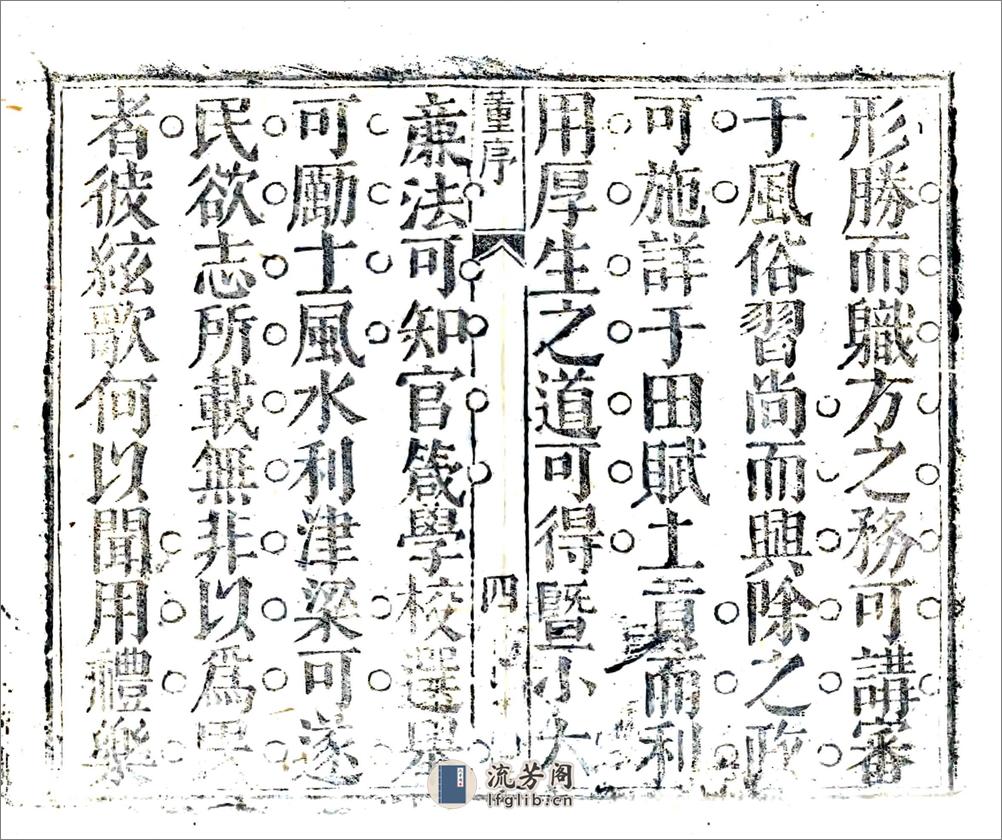 形勝而軄方之務可講審
于風俗習尚而興除之政
可施詳于田賦土貢而利
用厚生之道可得暨小大
董序
四
亷法可知官箴學校選舉
可勵士風水利津梁可遂
民欲志所載無非以爲
者彼絃歌何以聞用禮樂
流芳阁
lfglib.cn